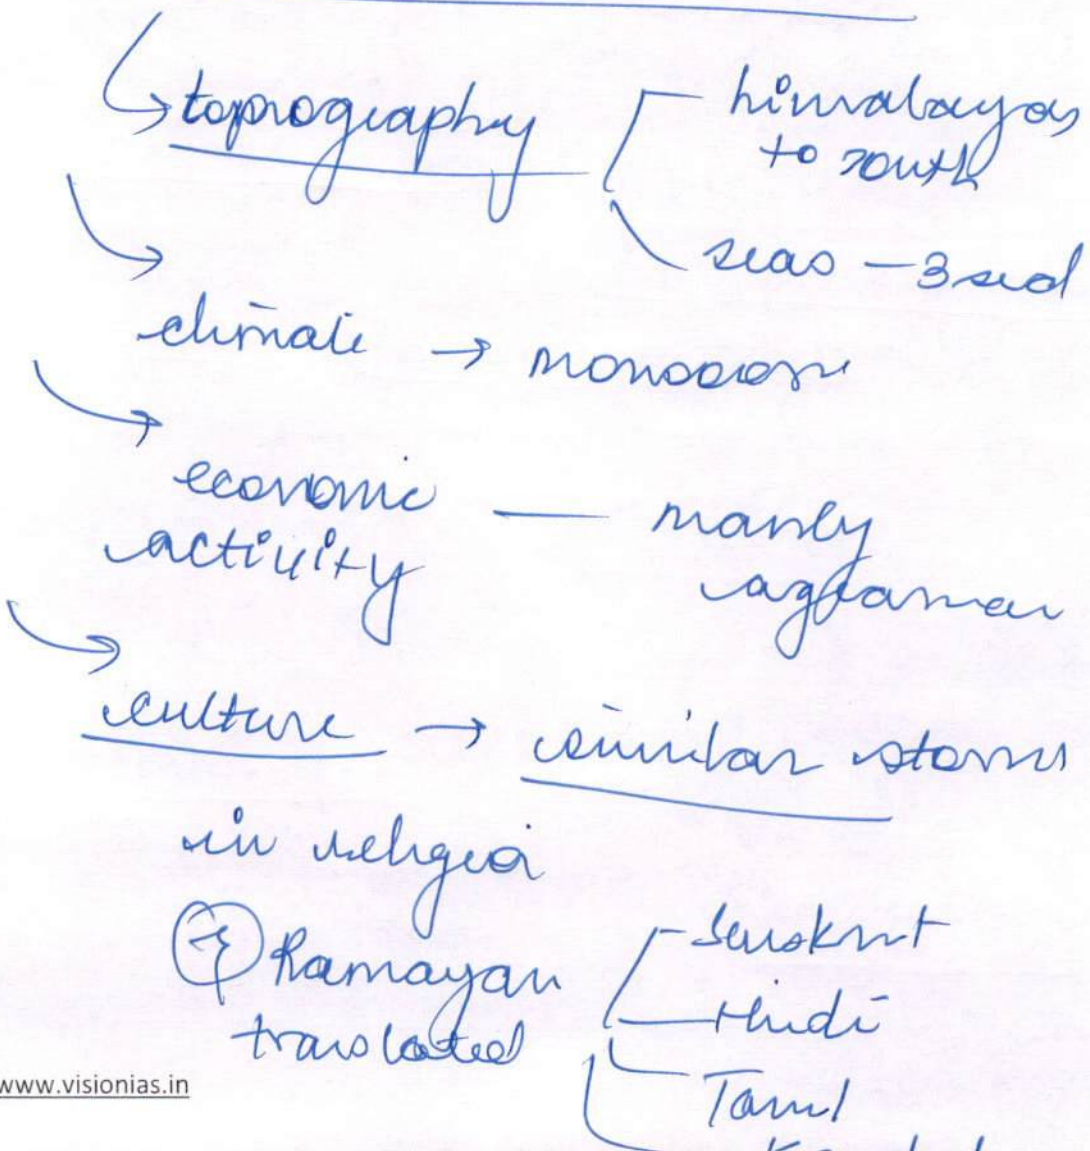 topography
himalayas
to south
seas – 3 sid
climate → monsoon
economic
activity — manly
agraria
culture → similar stories
in religio
eg Ramayan
translated
Sanskrit
Hindi
Tamil
www.visionias.in